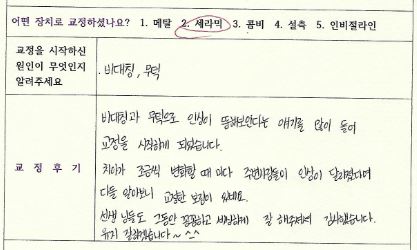 어떤 장치로 교정하셨나요? 1. 메탈 2. 세라믹 3. 콤비 4. 설측 5. 인비절라인
교정을 시작하신
원인이 무엇인지
알려주세요
. 비대칭, 무턱
교정후기
비대칭과 무턱으로 인상이 뚱해보인다는 얘기를 많이 들어
교정을 시작하게 되었습니다.
치아가 조금씩 변화할 때 마다 주변사람들이 인상이 달라졌다며
다들 알아보니 교정한 보람이 있네요.
선생님들도 그동안 꼼꼼하고 세심하게 잘 해주셔서 감사했습니다.
유지 잘하겠습니다~ ^^